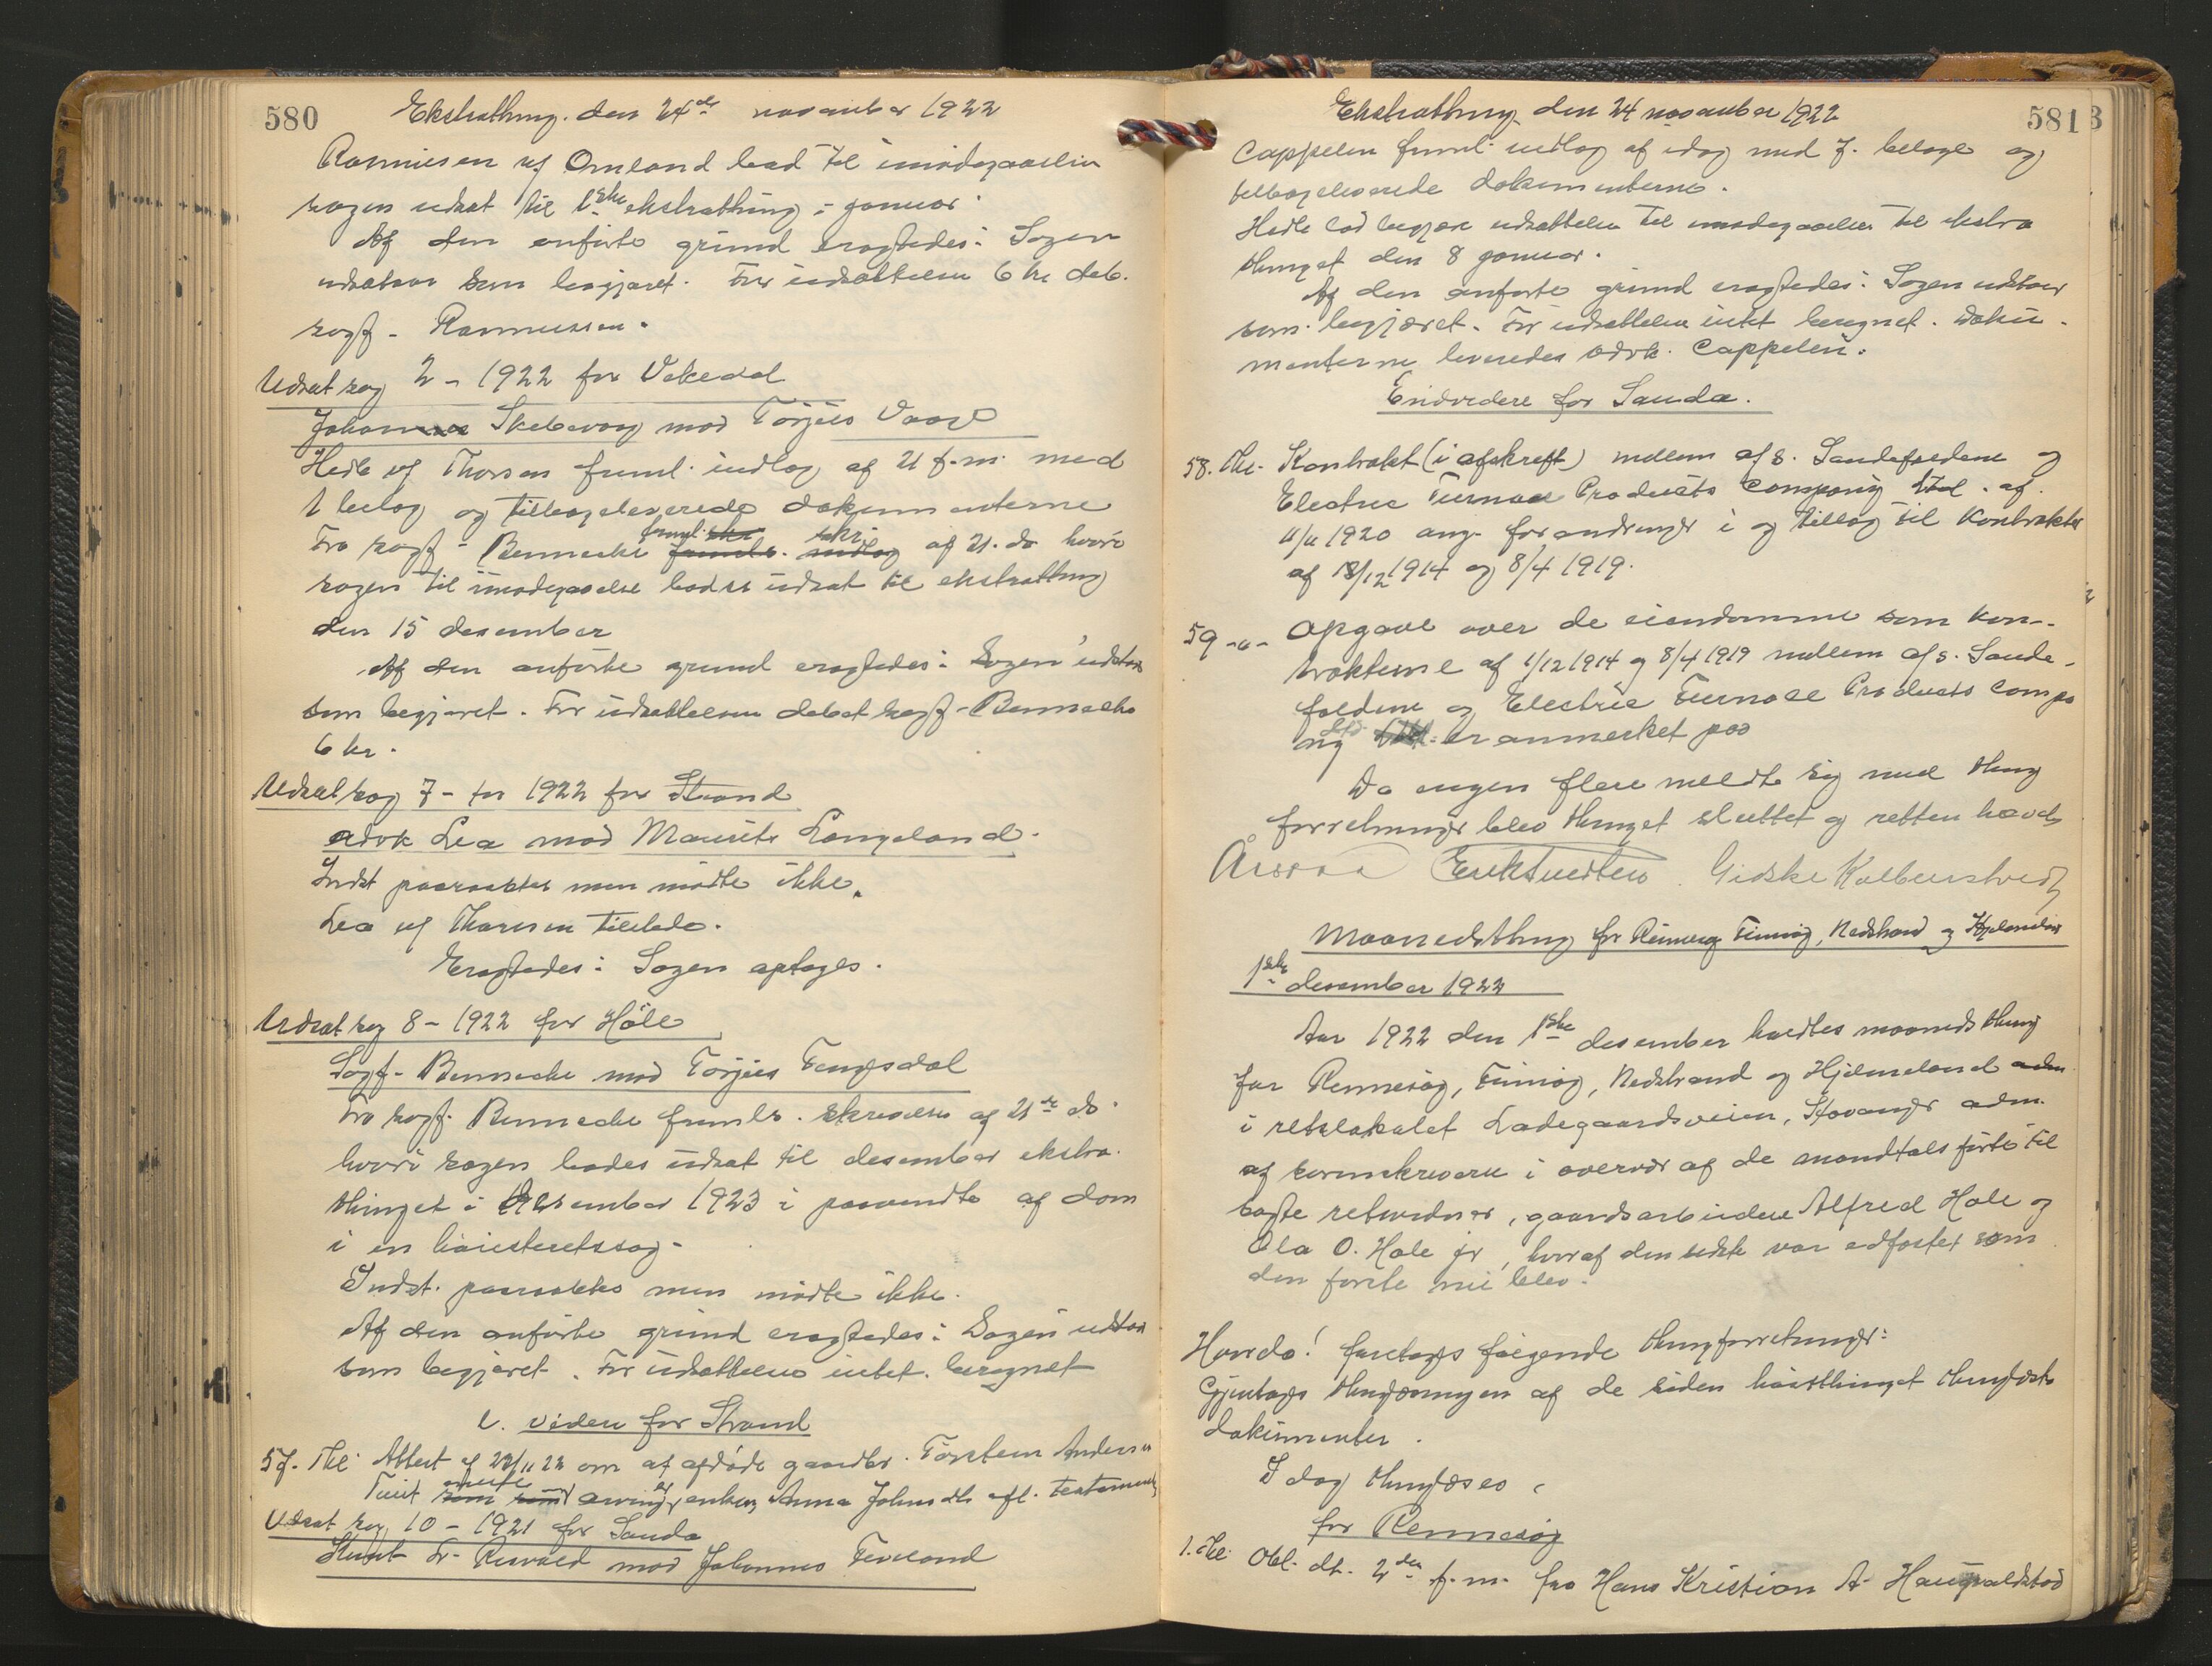 580
Ekstratthing. den 24de november 1922
Rasmussen v/ Omland bad til imødegaaelse
sagen udsat til 1ste ekstratthing i januar.
Af den anførte grund eragtedes: Sagen
udsættes som begjæret. For udsættelsen 6 kr deb.
sagf. Rasmussen.
Udsat sag 2 - 1922 for Vikedal
Johannes Skebevaag mod Törjeis Vaage
Hedle v/ Thorsen freml. indlæg af 21 f.m. med
1 bilag og tilbageleverede dokumenterne
Fra sagf. Bennecke freml. skr. af 21. ds hvori
sagen til imødegaaelse bades udsat til ekstratthing
den 15 desember
Af den anførte grund eragtedes: Sagen udsættes
som begjæret. For udsættelsen debet sagf. Bennecke
6 kr.
Udsat sag 7 - for 1922 for Strand
advk Lea mod Maurits Langeland.
Indst. paaraabtes men mødte ikke.
Lea v/ Thorsen tilstede.
Eragtedes: Sagen optages.
Udsat sag 8 - 1922 for Höle
Sagf. Bennecke mod Törjeis Tengsdal
Fra sagf. Bennecke fremls. skrivelse af 21de ds.
hvori sagen bades udsat til desember ekstra-
thinget i desember 1923 i paavente af dom
i en høiesteretssag.
Indst. paaraabtes men mødte ikke.
Af den anførte grund eragtedes: Sagen udsættes
som begjæret. For udsættelsen intet beregnet
E. videre for Strand
57. Thl. Attest af 22/11 22 om at afdøde gaardbr. Torstein Andersen
Tveit eneste arving er enken Anna Johnsdtr. efl. testamente
Udsat sag 10 - 1921 for Sauda
Skibst. Dr. Risvold mod Johannes Tveland
581
Ekstratthing den 24 november 1922
Cappelen freml. indlæg af idag med 7. bilage og
tilbageleverede dokumenterne.
Hedle lod begjære udsættelse til imødegaaelse til ekstra
thinget den 8 januar.
Af den anførte grund eragtedes: Sagen udsættes
som begjæret. For udsættelsen intet beregnet. Doku-
menterne leveredes advk. Cappelen.
Endvidere for Sauda.
58. Thl. Kontrakt (i afskrift) mellem A/S. Saudefaldene og
Electric Furnace Products Company Ltd. af
11/11 1920 ang. forandringer i og tillæg til kontrakter
af 18/12 1914 og 8/4 1919.
59 -"- Opgave over de eiendomme som kon-
trakterne af 1/12 1914 og 8/4 1919 mellem A/S. Saude-
faldene og Electric Furnace Products Compa
ny Ltd. er anmerket paa
Da ingen flere meldte sig med thing
forretninger blev thinget sluttet og retten hævd.
Erik Tuedten Gidske Kolbenstvedt
Maanedsthing for Rennesøy Finnøy, Nedstrand og Hjelmeland
1ste desember 1922
Aar 1922 den 1ste desember holdtes maanedsthing
for Rennesøy, Finnøy, Nedstrand og Hjelmeland
i retslokalet Ladegaardsveien, Stavanger adm.
af sorenskriveren i overvær af de mandtalsførte til
tagte retsvidner, gaardsarbeidere Alfred Hole og
Ola O. Hole jr, hvoraf den sidste var edfæstet som
den første nu blev.
Hvorda! foretoges følgende thingforretninger:
Gjentages thinglæsningen af de siden høstthinget thinglæste
dokumenter.
I dag thinglæses
for Rennesøy
1. Thl. Obl. dt. 2den f.m. fra Hans Kristian A. Haugvaldstad